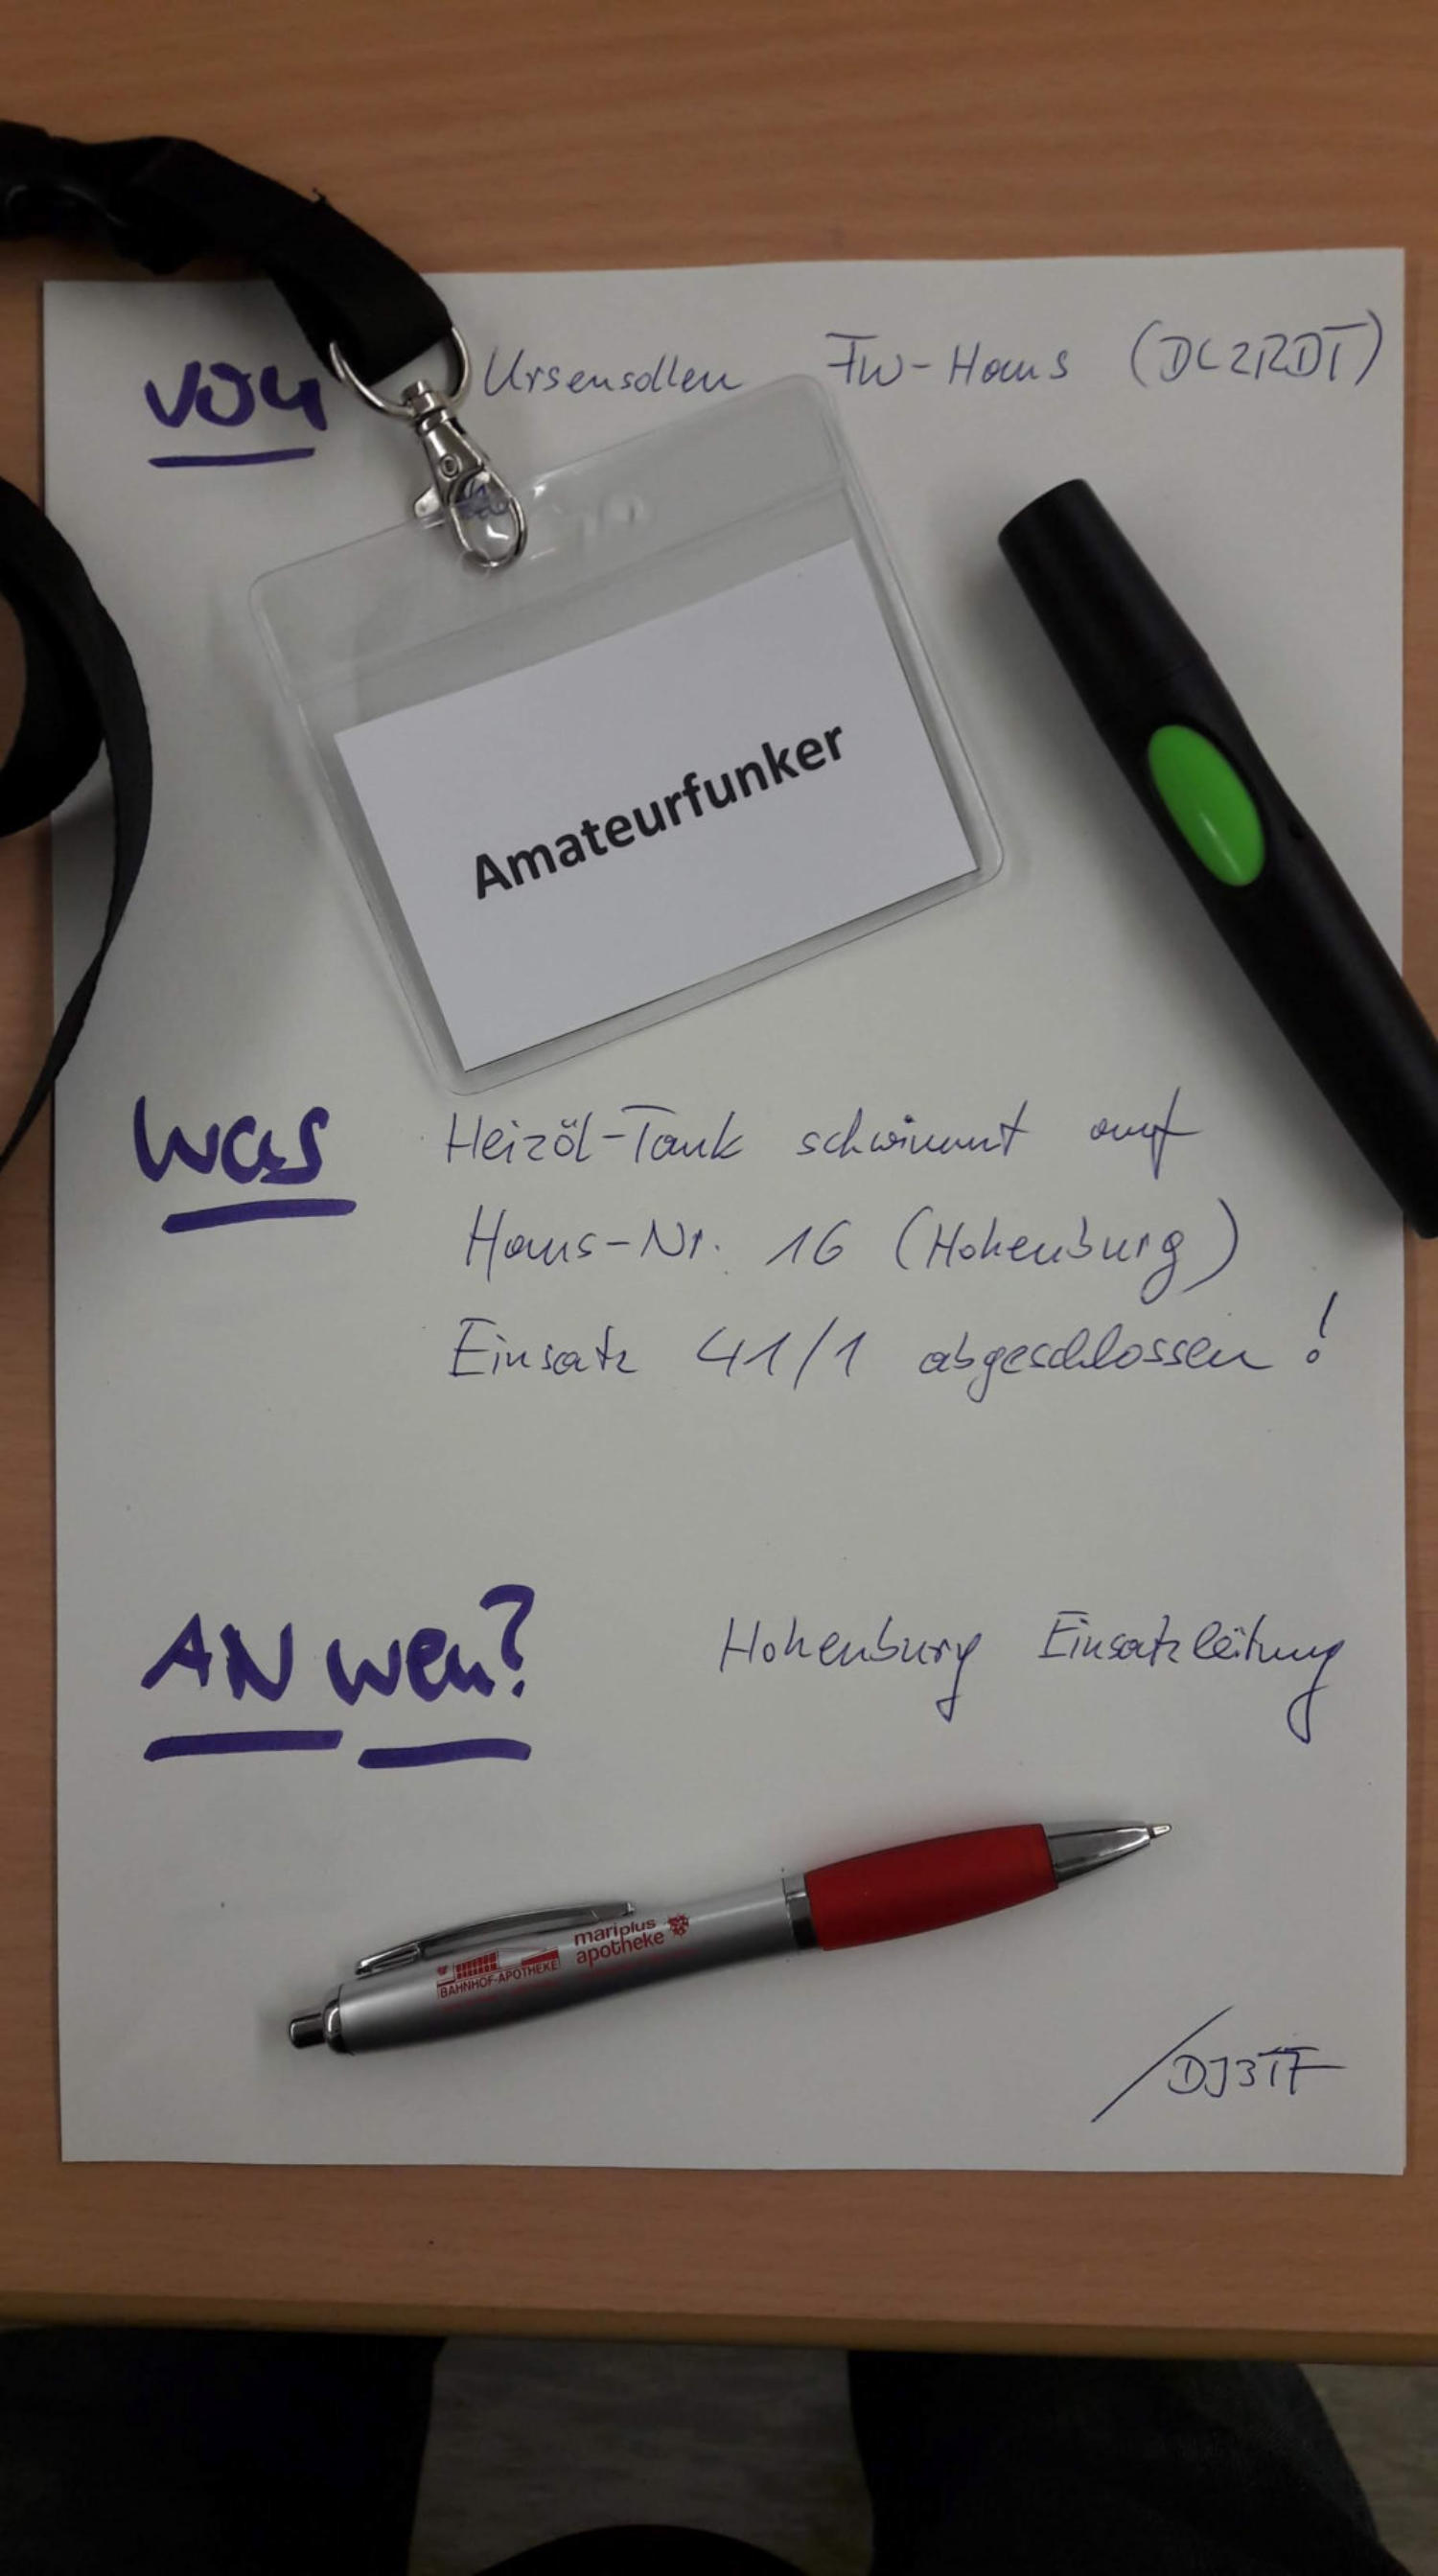 von Ursensollen Fw-Haus (DL2RDT)
Amateurfunker
Was Heizöl-Tank schwimmt auf
Haus-Nr. 16 (Hohenburg)
Einsatz 41/1 abgeschlossen!
AN wen? Hohenburg Einsatzleitung
mariplus
apotheke
BAHNHOF-APOTHEKE
/DJ3TF